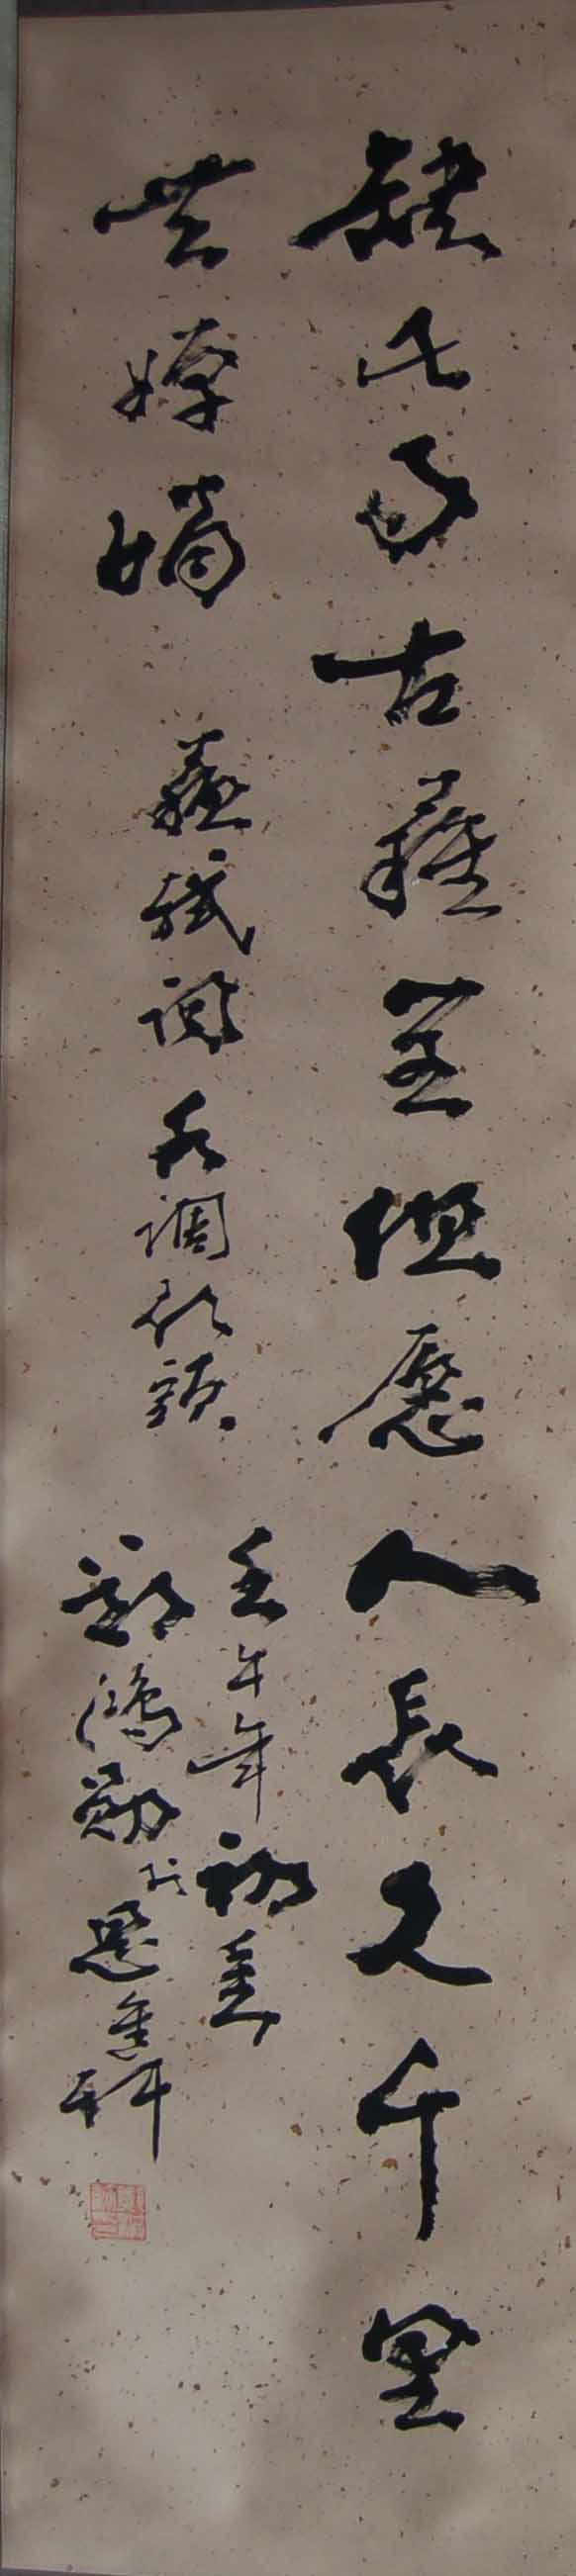 缺此事古難全但愿人長久千里
共嬋娟 蘇軾詞水調歌頭
壬午年初夏
鴻勛於墨金軒